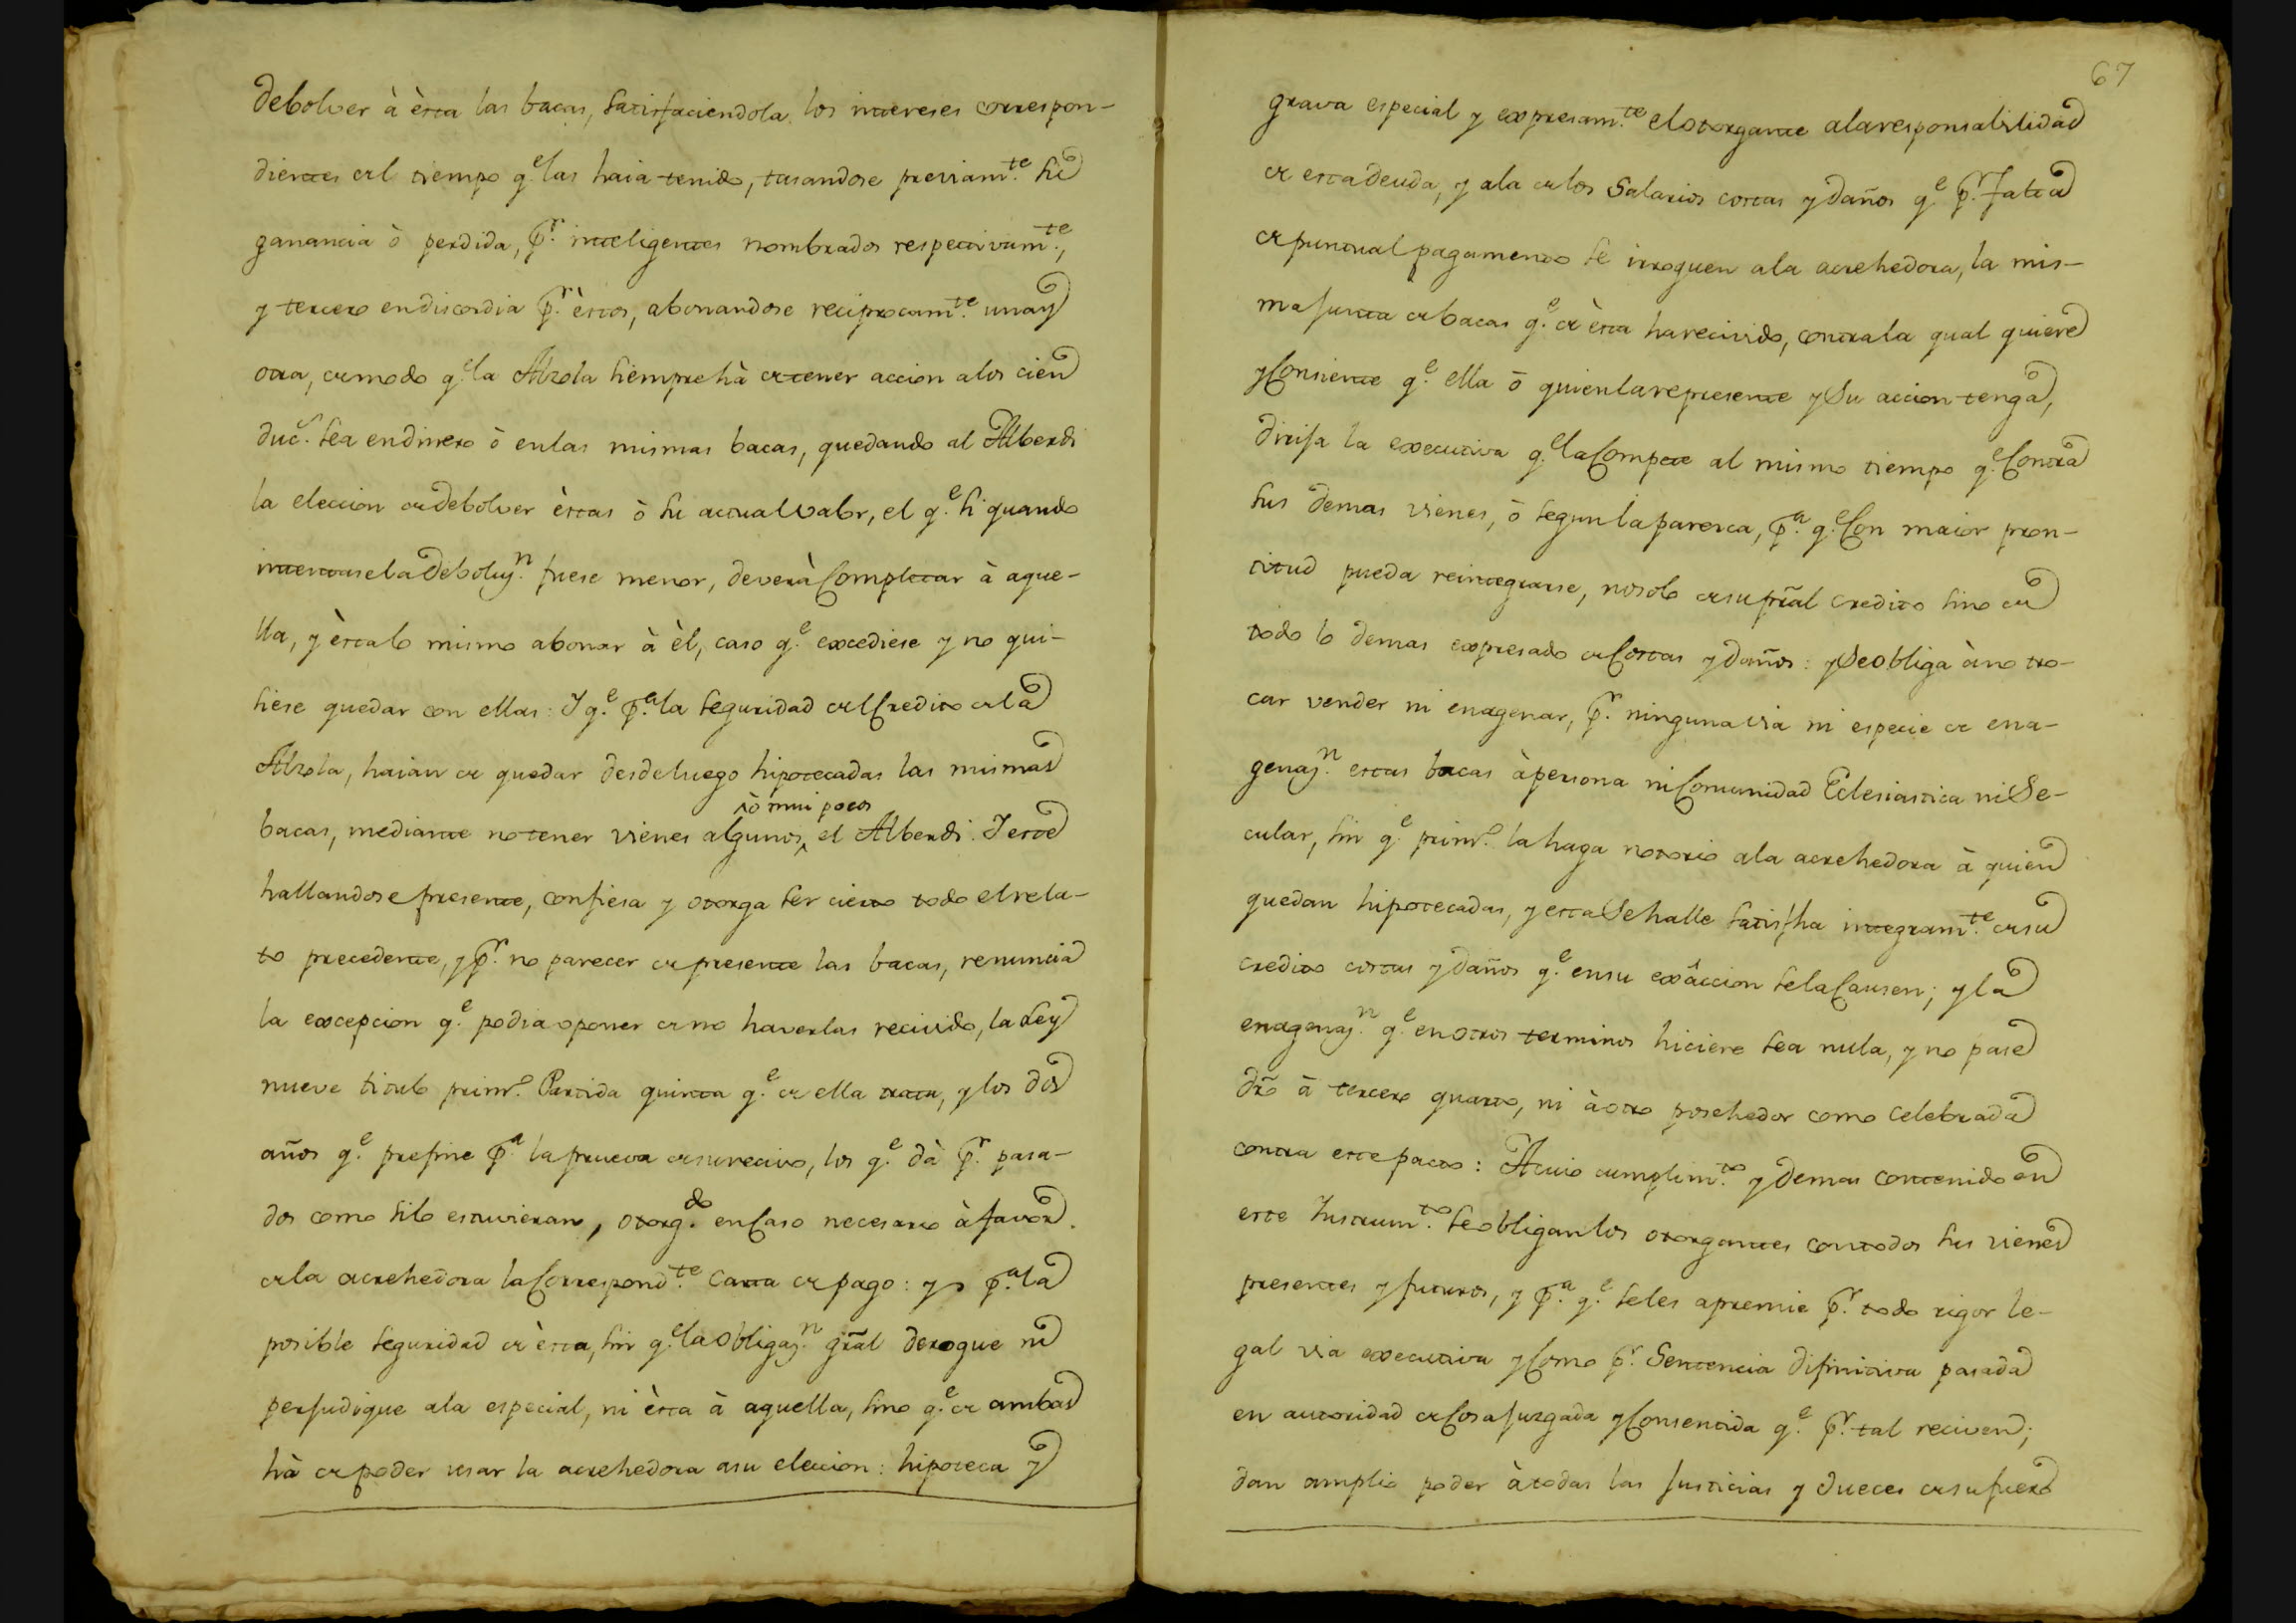 debolver à èsta las bacas, satisfaciendola los intereses correspon-
dientes al tiempo q.e las haia tenido, tasandose previam.te su
ganancia ò perdida, p.r inteligentes nombrados respectivam.te,
y tercero en discordia p.r èstos, abonandose reciprocam.te una y
otra, de modo q.e la Alzola siempre hà de tener accion a los cien
duc.s sea en dinero ò en las mismas bacas, quedando al Alberdi
la eleccion de debolver èstas ò su actual valor, el q.e si quando
intentase la deboluz.n fuese menor, deverà completar à aque-
lla, y èsta lo mismo abonar à èl, caso q.e excediese y no qui-
siese quedar con ellas: I q.e p.a la seguridad del credito de la
Alzola, haian de quedar desde luego hipotecadas las mismas
bacas, mediante no tener vienes algunos, ò mui pocos el Alberdi. I este
hallandose presente, confiesa y otorga ser cierto todo el rela-
to precedente, y p.r no parecer de presente las bacas, renuncia
la excepcion q.e podia oponer de no haverlas recivido, la Ley
nueve titulo prim.o Partida quinta q.e de ella trata, y los dos
años q.e prefine p.a la prueva de su recivo, los q.e dà p.r pasa-
dos como si lo estuvieran, otorg.do en caso necesario à favor
de la acrehedora la correspond.te carta de pago: y p.a la
posible seguridad de èsta, sin q.e la obligaz.n gral derogue ni
perjudique a la especial, ni èsta à aquella, sino q.e de ambas
hà de poder usar la acrehedora a su eleccion: hipoteca y
67
grava especial y expresam.te el otorgante a la responsabilidad
de esta deuda, y a la de los Salarios costas y daños q.e p.r falta
de puntual pagamento se irroguen a la acrehedora, la mis-
ma junta de bacas q.e de èsta ha recivido, contra la qual quiere
y consiente q.e ella ò quien la represente y su accion tenga,
dirija la executiva q.e la compete al mismo tiempo q.e contra
sus demas vienes, ò segun la paresca, p.a q.e con maior pron-
titud pueda reintegrarse, no solo de su pral credito sino de
todo lo demas expresado de costas y daños: y se obliga à no tro-
car vender ni enagenar, p.r ninguna via ni especie de ena-
genaz.n estas bacas à persona ni Comunidad Eclesiastica ni Se-
cular, sin q.e prim.o la haga notorio a la acrehedora à quien
quedan hipotecadas, y esta se halle satisfha integram.te de su
credito costas y daños q.e en su exâccion se la causen; y la
enagenaz.n q.e en otros terminos hiciere sea nula, y no pase
dro à tercero quarto, ni à otro posehedor como celebrada
contra este pacto: A cuio cumplim.to y demas contenido en
este Instrum.to se obligan los otorgantes con todos sus vienes
presentes y futuros, y p.a q.e se les apremie p.r todo rigor le-
gal via executiva y como p.r Sentencia difinitiva pasada
en autoridad de cosa juzgada y consentida q.e p.r tal reciven;
dan amplio poder à todas las Justicias y Jueces de su fuero